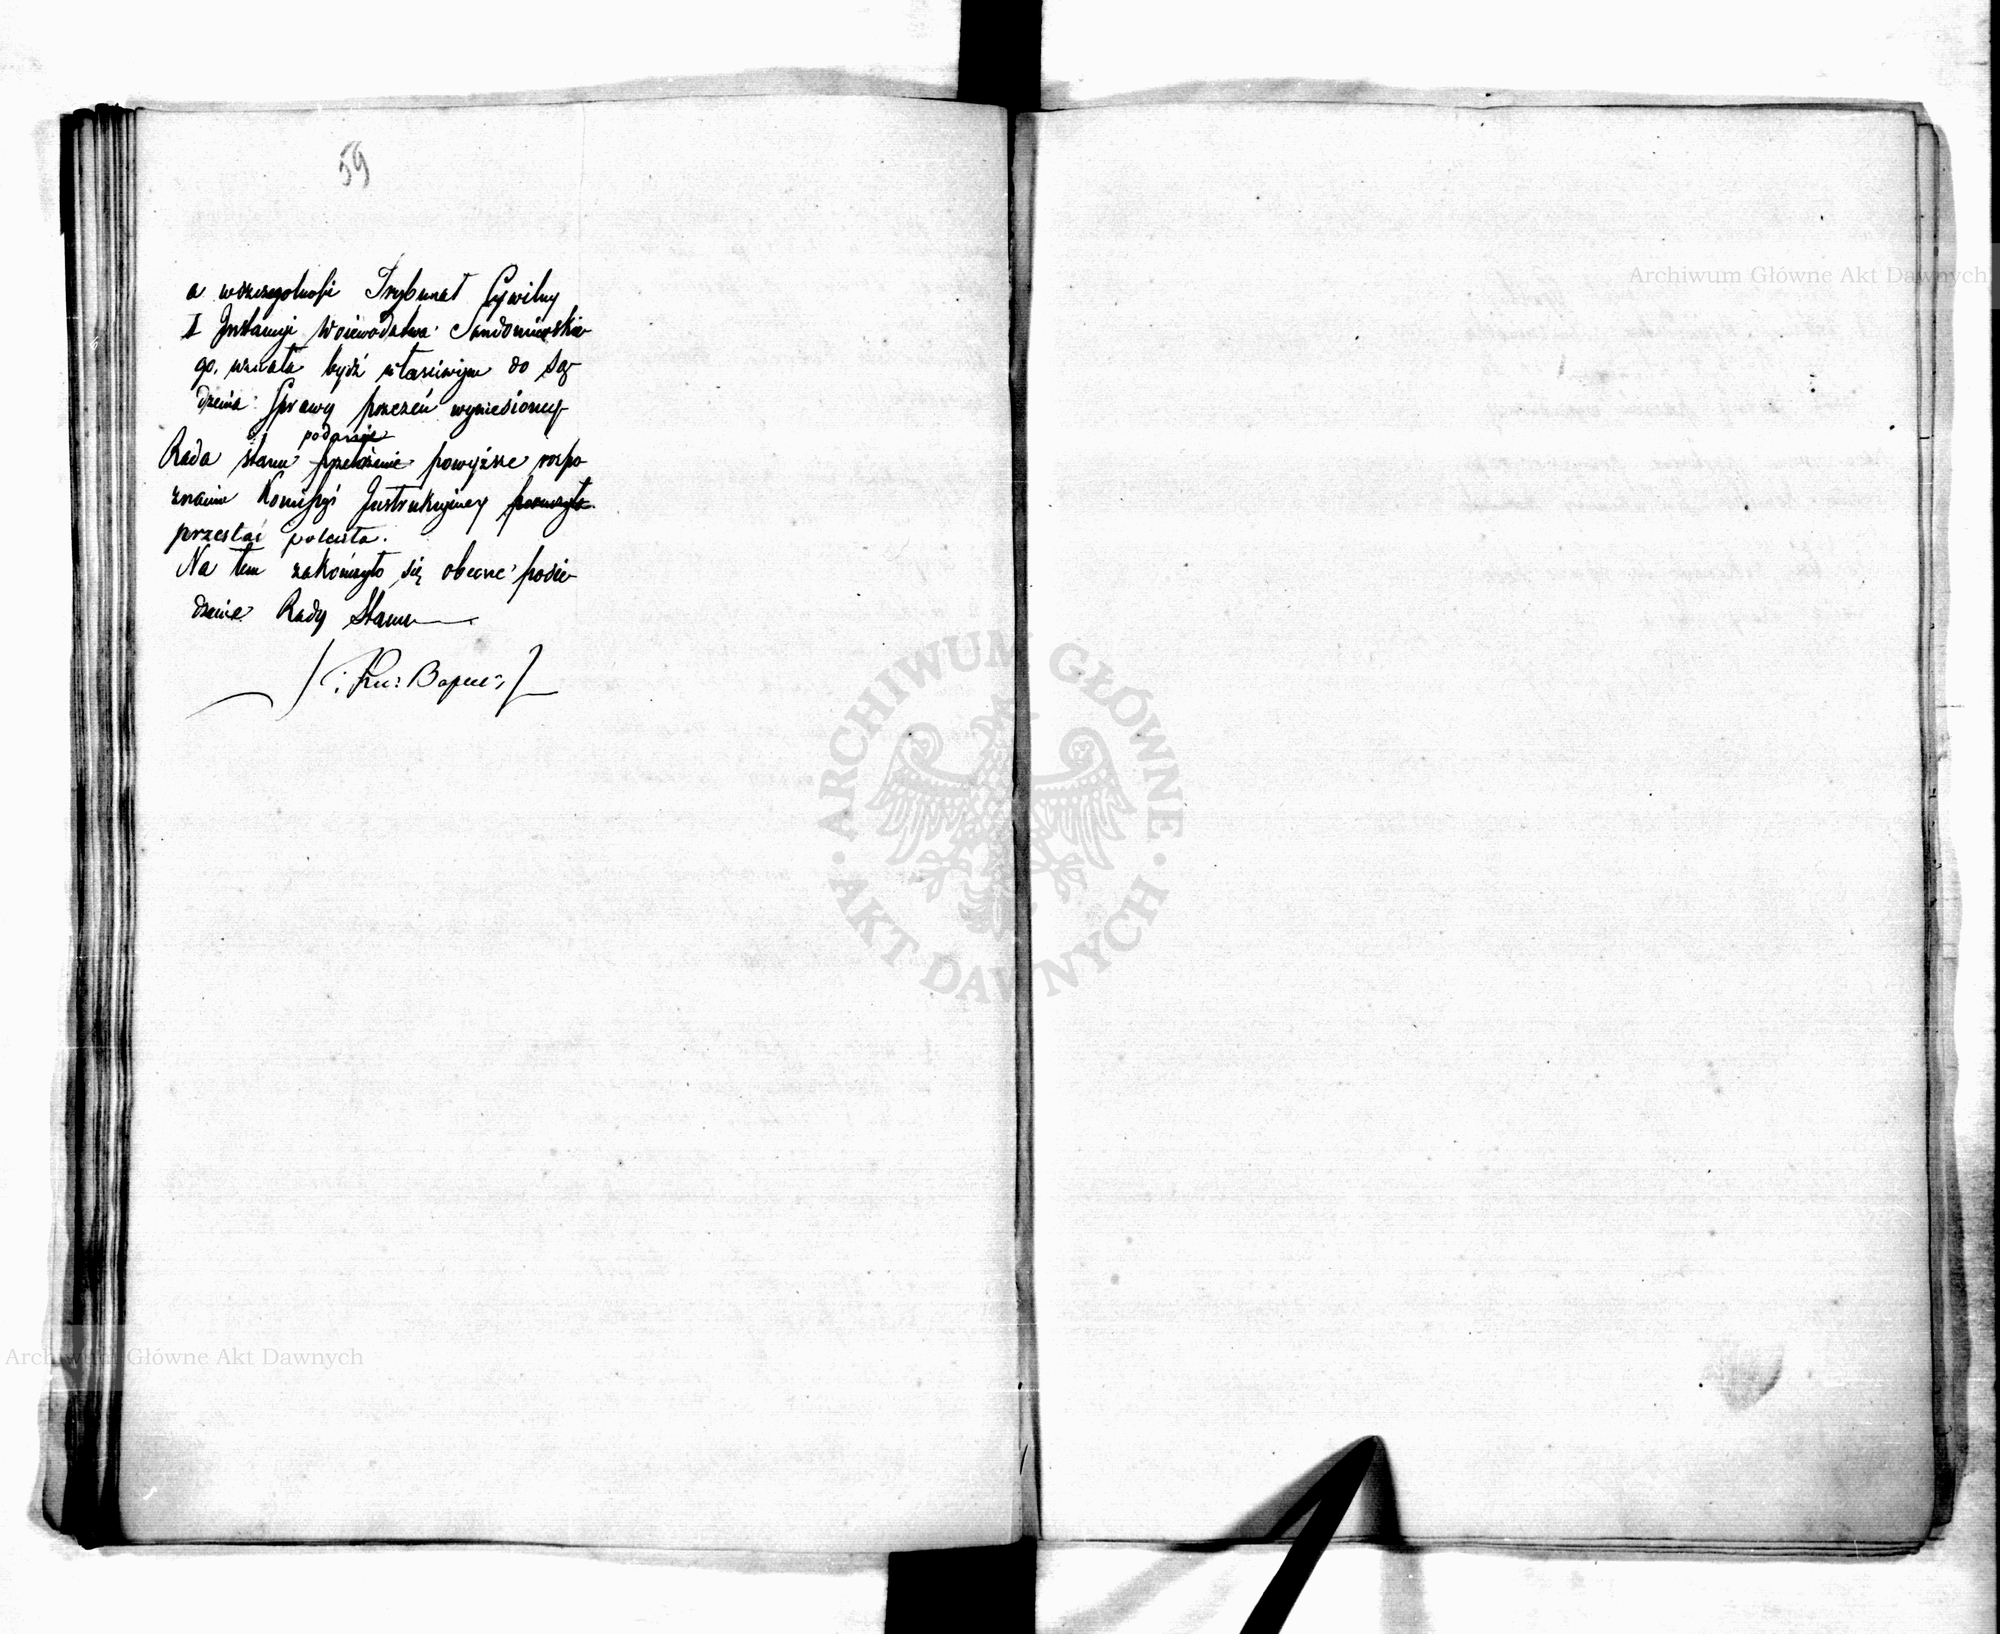 59
a wszczegolności Trybunał Cywilny
I Instancyi Woiewodztwa Sandomirskie
go, uznała bydź właściwym do Są-
dzenia Sprawy przezeń wyniesioney
podanie
Rada Stanu przełożenie powyższe rozpo
znaniu Kommissyi Instrukcyiney
przesłać poleciła.
Na tem zakończyło się obecne posie-
dzenie Rady Stanu
Archiwum Główne Akt Dawnych
ARCHIWUM GŁÓWNE
AKT DAWNYCH
Archiwum Główne Akt Dawnych